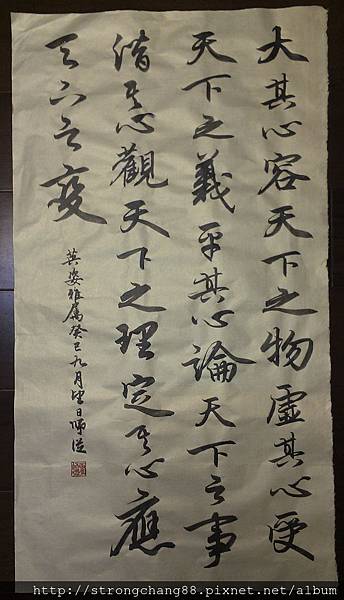 大其心容天下之物虛其心受
天下之義平其心論天下之事
潛其心觀天下之理定其心應
天下之變
英姿雅屬癸巳九月望日
http://strongchang88.pixnet.net/album